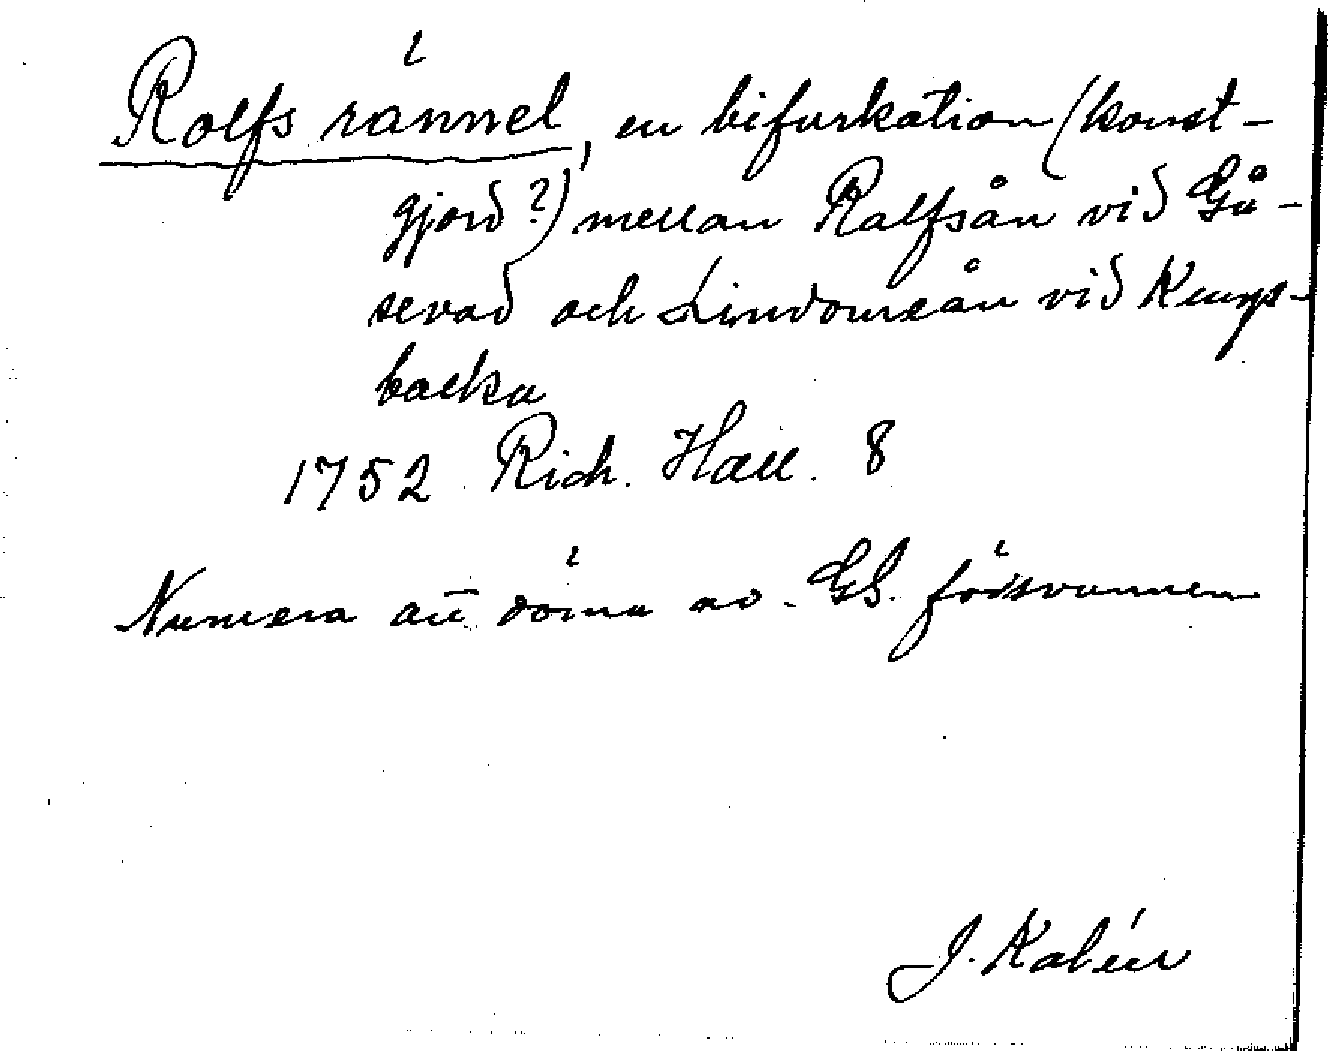 Rolfs rännel, en bifurkation (konst-
gjord?) mellan Rolfsån vid Gå-
sevad och Lindomeån vid Kungs-
backa
1752 Rich. Hall. 8
Numera att döma av GS. försvunnen
J. Kalén